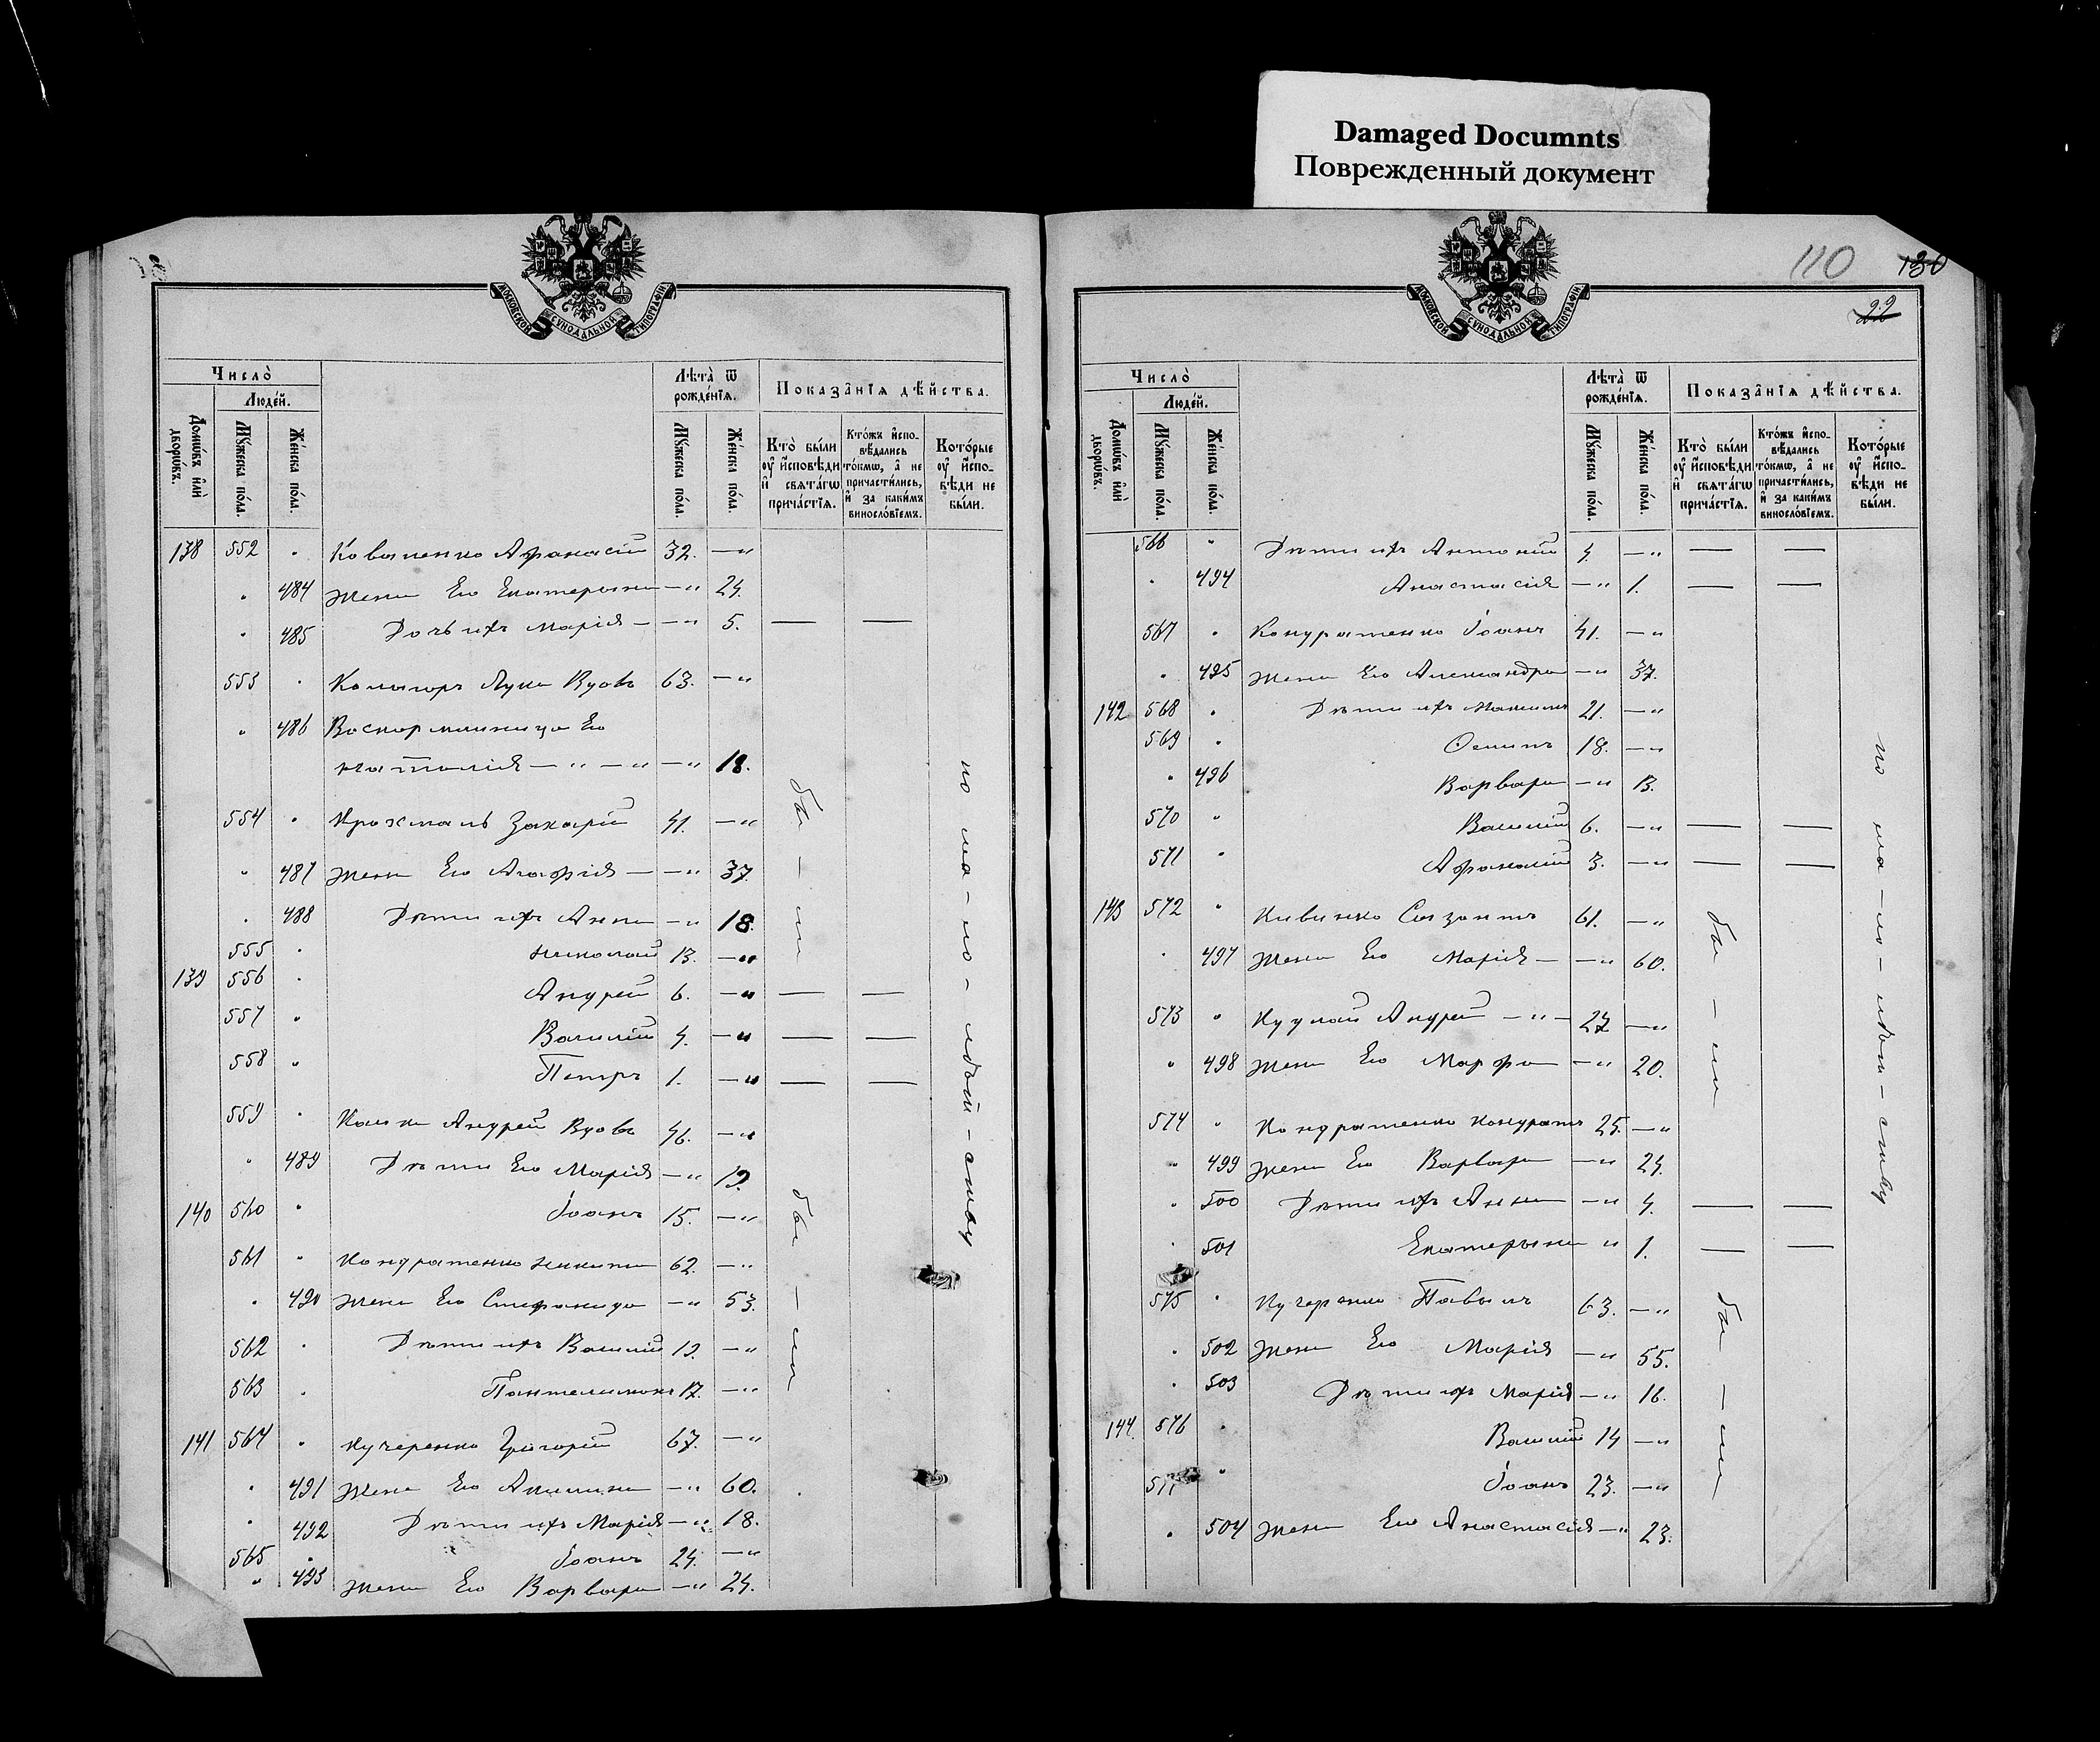 Damaged Documnts
Поврежденный документ
110 130
22
МОСКОВСКОЙ СѴНОДАЛЬНОЙ ТИПОГРАФІИ
Число̀
Люде́й.
Домѡ́въ и҆лѝ дворѡ́въ.
Мꙋ́жеска по́ла.
Же́нска по́ла.
Лѣ́та ѿ рожде́нїѧ.
Мꙋ́жеска по́ла.
Же́нска по́ла.
Показа̑нїѧ дѣ́йства.
Кто̀ бы́ли ᲂу҆ и҆́сповѣди и҆ свѧта́гѡ прича́стїѧ.
Кто́жъ и҆сповѣ́дались то́кмѡ, а҆ не причасти́лись, и҆ за каки́мъ виносло́вїемъ.
Кото́рые ᲂу҆ и҆́сповѣди не бы́ли.
138 552 Коваленко Афанасій 32. —"
484 жена Его Екатерина —" 24.
485 Дочь ихъ Марія — —" 5. — —
553 Лука Вдовъ 63. —"
486 Воспормленница Его
Наталія — " — " —" 18.
554 Крохмаль Захарій 41. —"
487 жена Его Агафія — —" 37.
488 Дѣти ихъ Анна —" 18.
555 Николай 13. —"
139 556 Андрей 6. —" — —
557 Василій 4. —" — —
558 Петръ 1. —" — —
559 Андрей Вдовъ 46. —"
489 Дѣти Его Марія —" 19.
140 560 Іоанъ 15. —"
561 Кондратенко Никита 62. —"
490 жена Его Стефанида —" 53.
562 Дѣти ихъ Василій 19. —"
563 Пантелимонъ 17. —"
141 564 Кучеренко Григорій 67. —"
491 жена Его Акилина —" 60.
492 Дѣти ихъ Марія —" 18.
565 Іоанъ 24. —"
493 жена Его Варвара —" 24.
бы — ли
бы — ли
по ма-ло-лѣтству
Число̀
Люде́й.
Домѡ́въ и҆лѝ дворѡ́въ.
Мꙋ́жеска по́ла.
Же́нска по́ла.
Лѣ́та ѿ рожде́нїѧ.
Мꙋ́жеска по́ла.
Же́нска по́ла.
Показа̑нїѧ дѣ́йства.
Кто̀ бы́ли ᲂу҆ и҆́сповѣди и҆ свѧта́гѡ прича́стїѧ.
Кто́жъ и҆сповѣ́дались то́кмѡ, а҆ не причасти́лись, и҆ за каки́мъ виносло́вїемъ.
Кото́рые ᲂу҆ и҆́сповѣди не бы́ли.
566 Дѣти ихъ Антоній 4. —" — —
494 Анастасія —" 1. — —
567 Кондратенко Іоанъ 41. —"
495 жена Его Александра —" 37.
142 568 Дѣти ихъ Максимъ 21. —"
569 Осипъ 18. —"
496 Варвара —" 13.
570 Василій 6. —" — —
571 Афанасій 3. —" — —
143 572 Созонтъ 61. —"
497 жена Его Марія — —" 60.
573 Андрей — " — 27 —"
498 жена Его Марфа —" 20.
574 Кондратенко Кондратъ 25. —"
499 жена Его Варвара —" 24.
500 Дѣти ихъ Анна —" 4. — —
501 Екатерина " 1. — —
575 Кучеренко Павелъ 63. —"
502 жена Его Марія —" 55.
503 Дѣти ихъ Марія —" 16.
144. 576 Василій 14 —"
577 Іоанъ 23. —"
504 жена Его Анастасія —" 23.
бы — ли
бы — ли
по ма-ло-лѣтству